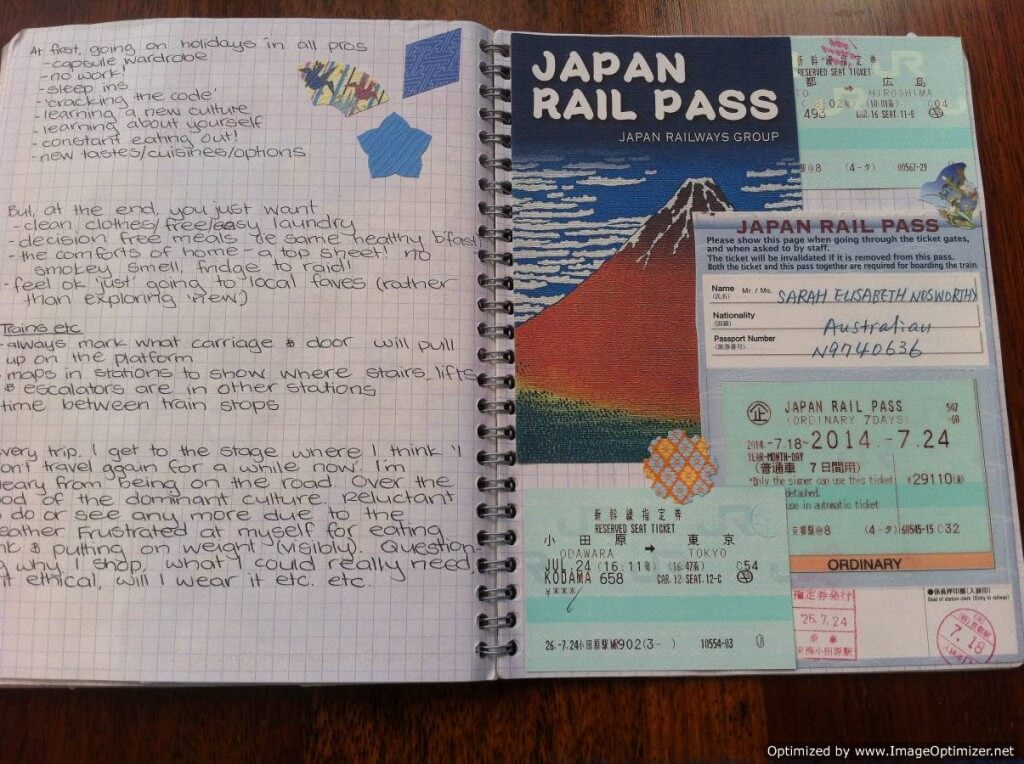 At first, going on holidays in all pros
- capsule wardrobe
- no work!
- sleep ins
- 'cracking the code'
- learning a new culture
- learning about yourself
- constant eating out!
- new tastes/cuisines/options
But, at the end, you just want
- clean clothes/free/easy laundry
- decision free meals ie same healthy b'fast
- the comforts of home a top sheet, no
smokey smell, fridge to raid!
- feel ok 'just' going to 'local' faves (rather
than exploring 'new')
Trains etc
- always mark what carriage & door will pull
up on the platform
- maps in stations to show where stairs, lifts
& escalators are in other stations
time between train stops
very trip, I get to the stage where I think 'I
on't travel again for a while now'. I'm
eary from being on the road. Over the
od of the dominant culture. Reluctant
do or see any more due to the
eather Frustrated at myself for eating
nk & putting on weight (visibly). Question
g why I shop, what I could really need,
it ethical, will I wear it etc. etc.
JAPAN
RAIL PASS
JAPAN RAILWAYS GROUP
新幹線指定券
RESERVED SEAT TICKET
都 → 広島
TO HIROSHIMA
C04
493 CAR.16 SEAT.11-B
(4-タ) 00567-29
JAPAN RAIL PASS
Please show this page when going through the ticket gates,
and when asked to by staff.
The ticket will be invalidated if it is removed from this pass.
Both the ticket and this pass together are required for boarding the train.
Name Mr. / Ms. SARAH ELISABETH NOSWORTHY
(氏名)
Nationality Australian
(国籍)
Passport Number N9740636
(旅券番号)
企 JAPAN RAIL PASS
(ORDINARY 7DAYS)
2014.-7.18~2014.-7.24
YEAR-MONTH-DAY
(普通車 7日間用)
*Only the signer can use this ticket ¥29110
detached.
use in automatic ticket
京都駅@8 (4-タ) 60545-15 C32
ORDINARY
新幹線指定券
RESERVED SEAT TICKET
小田原 → 東京
ODAWARA TOKYO
JUL.24 (16:11発) (16:47着) C54
KODAMA 658 CAR.12 SEAT.12-C
¥***
26.-7.24小田原駅MR902(3-) 10554-03
指定券発行
26.7.24
●係員押印欄(入鋏印)
Seal of station clerk (Entry to railway)
7.18
Optimized by www.ImageOptimizer.net